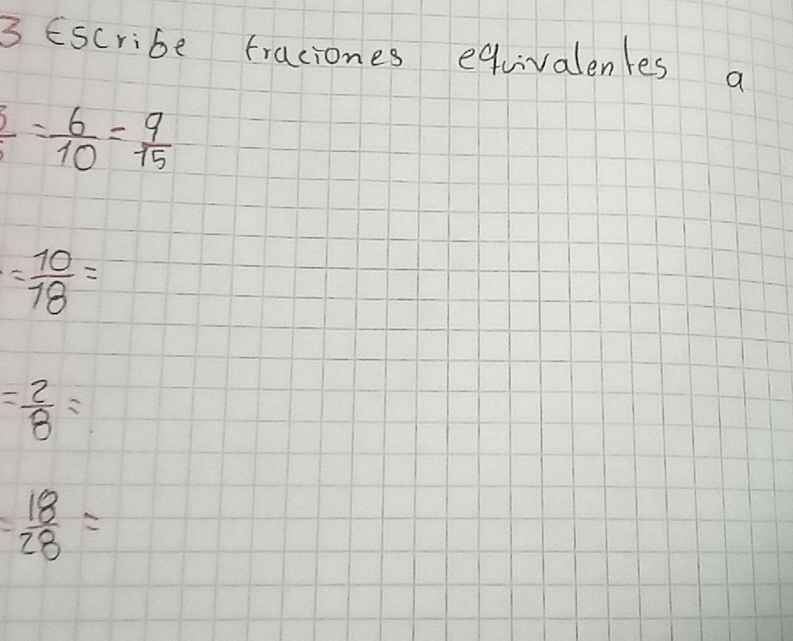 3 Escribe fraciones equivalentes a
= 6/10 = 9/15
= 10/18 =
= 2/8 =
= 18/28 =